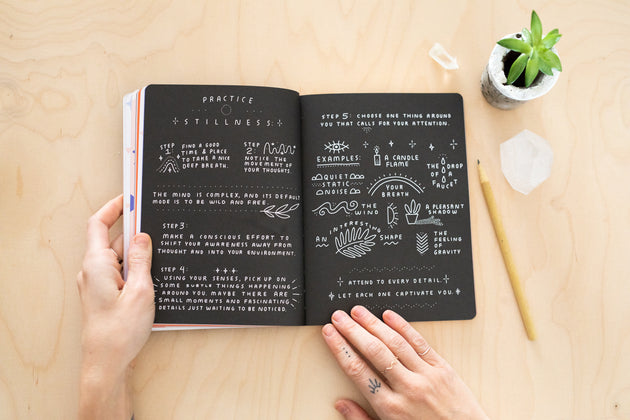 PRACTICE
STILLNESS:
STEP 1:
FIND A GOOD
TIME & PLACE
TO TAKE A NICE
DEEP BREATH.
STEP 2:
NOTICE THE
MOVEMENT OF
YOUR THOUGHTS.
THE MIND IS COMPLEX, AND ITS DEFAULT
MODE IS TO BE WILD AND FREE
STEP 3:
MAKE A CONSCIOUS EFFORT TO
SHIFT YOUR AWARENESS AWAY FROM
THOUGHT AND INTO YOUR ENVIRONMENT.
STEP 4:
USING YOUR SENSES, PICK UP ON
SOME SUBTLE THINGS HAPPENING
AROUND YOU. MAYBE THERE ARE
SMALL MOMENTS AND FASCINATING
DETAILS JUST WAITING TO BE NOTICED.
STEP 5: CHOOSE ONE THING AROUND
YOU THAT CALLS FOR YOUR ATTENTION.
EXAMPLES:
A CANDLE
FLAME
THE DROP
OF
A
FAUCET
QUIET
STATIC
NOISE
YOUR
BREATH
THE WIND
A PLEASANT
SHADOW
AN INTERESTING SHAPE
THE
FEELING
OF
GRAVITY
ATTEND TO EVERY DETAIL.
LET EACH ONE CAPTIVATE YOU.